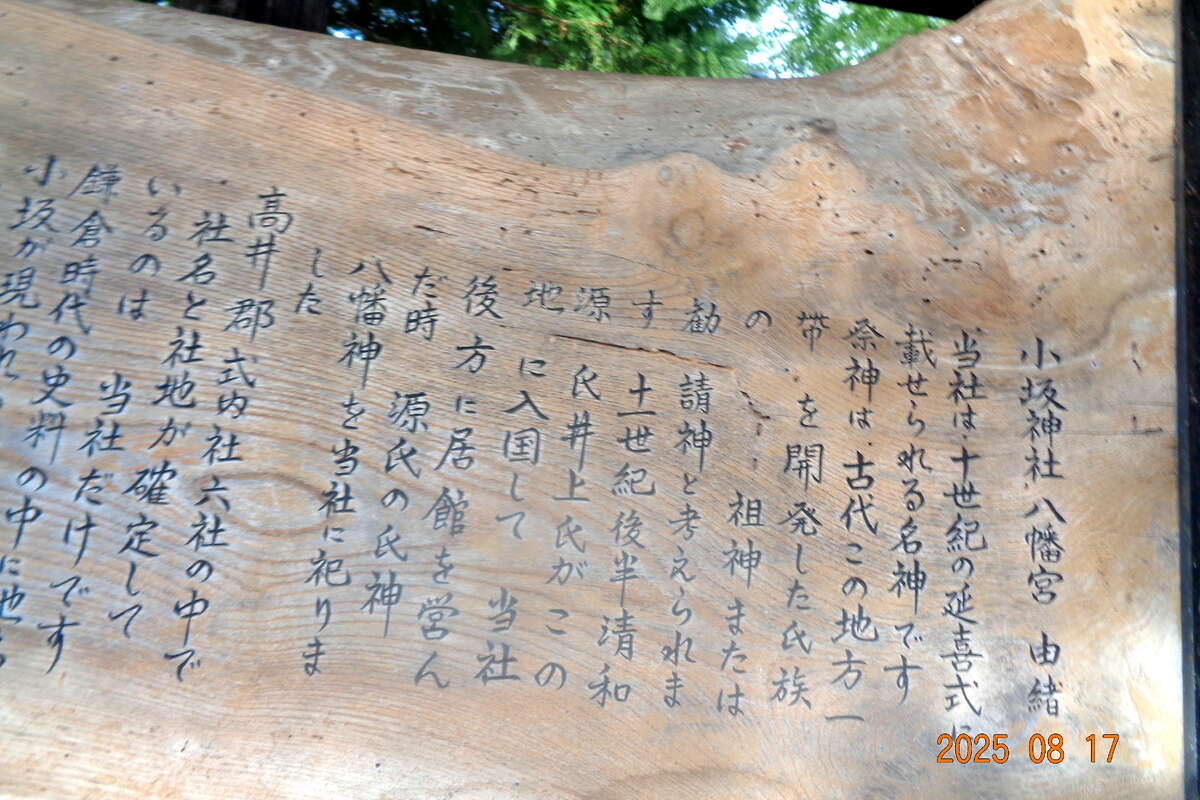 小坂神社八幡宮 由緒
当社は十世紀の延喜式に
載せられる名神です
祭神は古代この地方一
帯を開発した氏族
の 祖神または
勧請神と考えられま
す 十一世紀後半清和
源氏井上氏がこの
地に入国して 当社
後方に居館を営ん
だ時 源氏の氏神
八幡神を当社に祀りま
した
高井郡式内社六社の中で
社名と社地が確定して
いるのは 当社だけです
鎌倉時代の史料の中に
小坂が現われ
2025 08 17